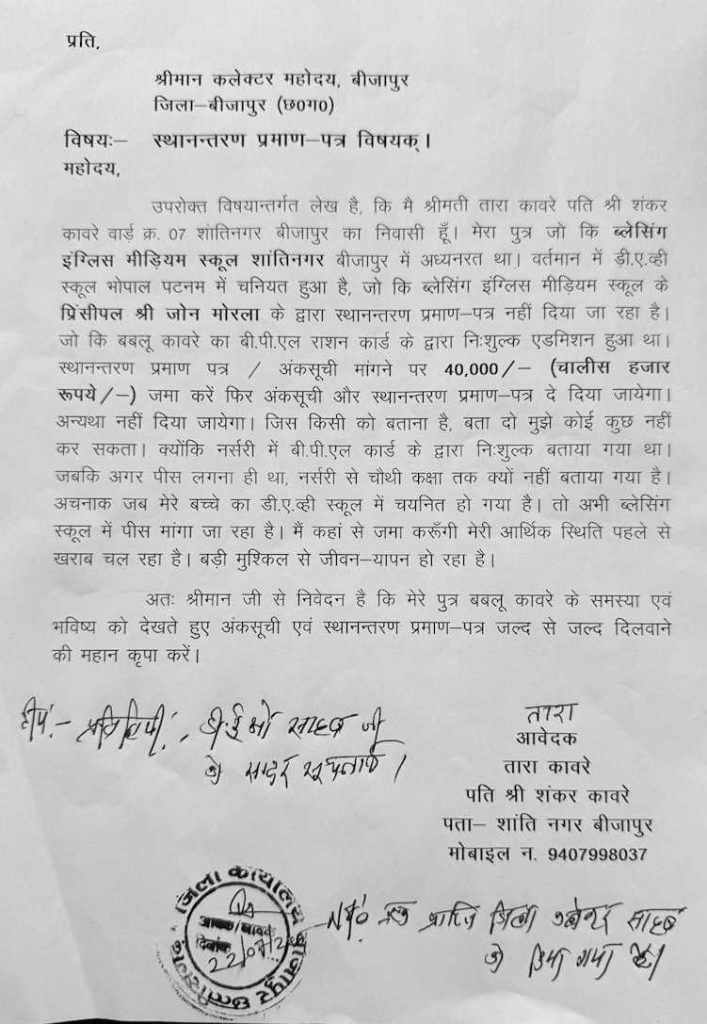 प्रति,
श्रीमान कलेक्टर महोदय, बीजापुर
जिला–बीजापुर (छ0ग0)
विषयः– स्थानन्तरण प्रमाण–पत्र विषयक्।
महोदय,
उपरोक्त विषयान्तर्गत लेख है, कि मै श्रीमती तारा कावरे पति श्री शंकर
कावरे वार्ड क्र. 07 शांतिनगर बीजापुर का निवासी हूँ। मेरा पुत्र जो कि ब्लेसिंग
इंग्लिस मीड़ियम स्कूल शांतिनगर बीजापुर में अध्यनरत था। वर्तमान में ड़ी.ए.व्ही
स्कूल भोपाल पटनम में चनियत हुआ है, जो कि ब्लेसिंग इंग्लिस मीड़ियम स्कूल के
प्रिंसीपल श्री जोन मोरला के द्वारा स्थानन्तरण प्रमाण–पत्र नहीं दिया जा रहा है।
जो कि बबलू कावरे का बी.पी.एल राशन कार्ड के द्वारा निःशुल्क एडमिशन हुआ था।
स्थानन्तरण प्रमाण पत्र / अंकसूची मांगने पर 40,000/– (चालीस हजार
रूपये/–) जमा करें फिर अंकसूची और स्थानन्तरण प्रमाण–पत्र दे दिया जायेगा।
अन्यथा नहीं दिया जायेगा। जिस किसी को बताना है, बता दो मुझे कोई कुछ नहीं
कर सकता। क्योंकि नर्सरी में बी.पी.एल कार्ड के द्वारा निःशुल्क बताया गया था।
जबकि अगर पीस लगना ही था, नर्सरी से चौथी कक्षा तक क्यों नहीं बताया गया है।
अचानक जब मेरे बच्चे का डी.ए.व्ही स्कूल में चयनित हो गया है। तो अभी ब्लेसिंग
स्कूल में पीस मांगा जा रहा है। मैं कहां से जमा करूँगी मेरी आर्थिक स्थिति पहले से
खराब चल रहा है। बड़ी मुश्किल से जीवन–यापन हो रहा है।
अतः श्रीमान जी से निवेदन है कि मेरे पुत्र बबलू कावरे के समस्या एवं
भविष्य को देखते हुए अंकसूची एवं स्थानन्तरण प्रमाण–पत्र जल्द से जल्द दिलवाने
की महान कृपा करें।
प्रतिलिपी. डी ई ओ साहब जी
को सादर सूचनार्थ।
तारा
आवेदक
तारा कावरे
पति श्री शंकर कावरे
पता– शांति नगर बीजापुर
मोबाइल न. 9407998037
जिला कार्यालय बीजापुर छत्तीसगढ़
दिनांक
जिला कलेक्टर साहब
को दिया गया है।